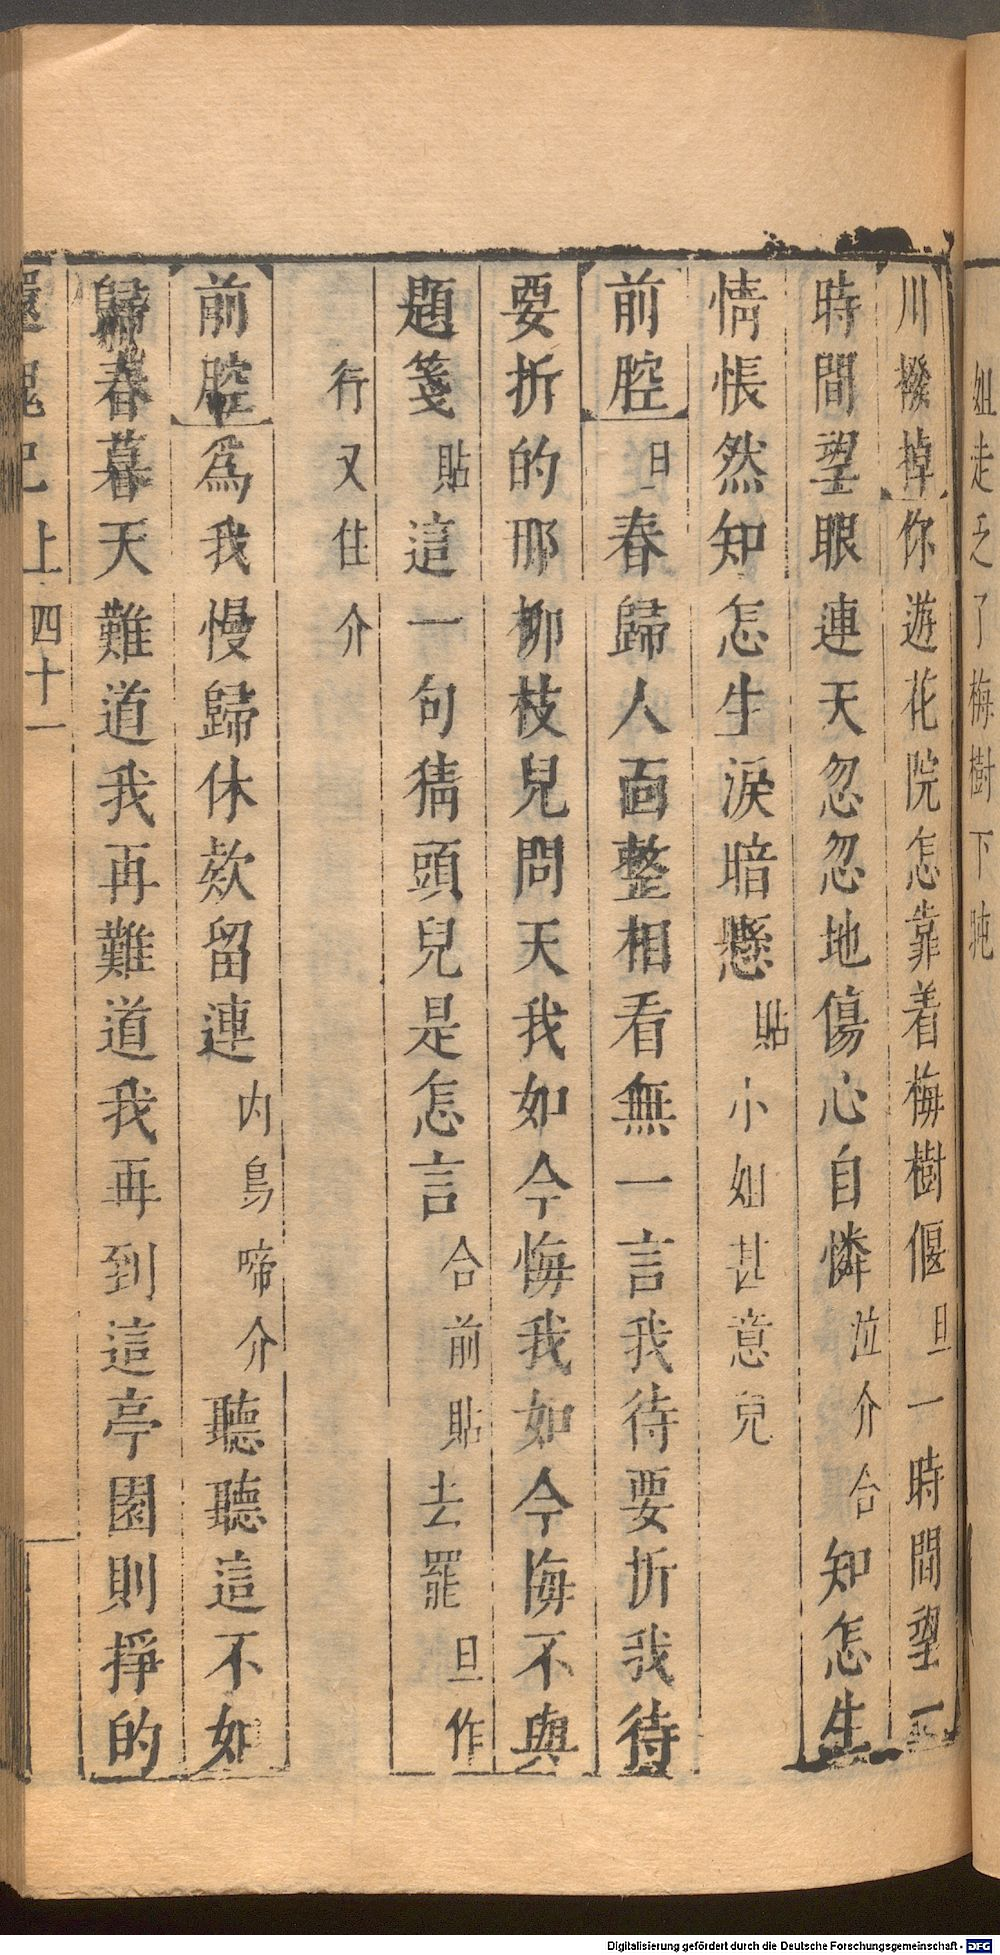 姐走乏了梅樹下盹
川撥棹你遊花院怎靠着梅樹偃旦一時間望一
時間望眼連天忽忽地傷心自憐泣介合知怎生
情悵然知怎生淚暗懸貼小姐甚意兒
前腔旦春歸人面整相看無一言我待要折我待
要折的那柳枝兒問天我如今悔我如今悔不與
題箋貼這一句猜頭兒是怎言合前貼去罷旦作
行又住介
前腔為我慢歸休欵留連內鳥啼介聽聽這不如
歸春暮天難道我再難道我再到這亭園則掙的
還魂記 上 四十一
Digitalisierung gefördert durch die Deutsche Forschungsgemeinschaft - DFG